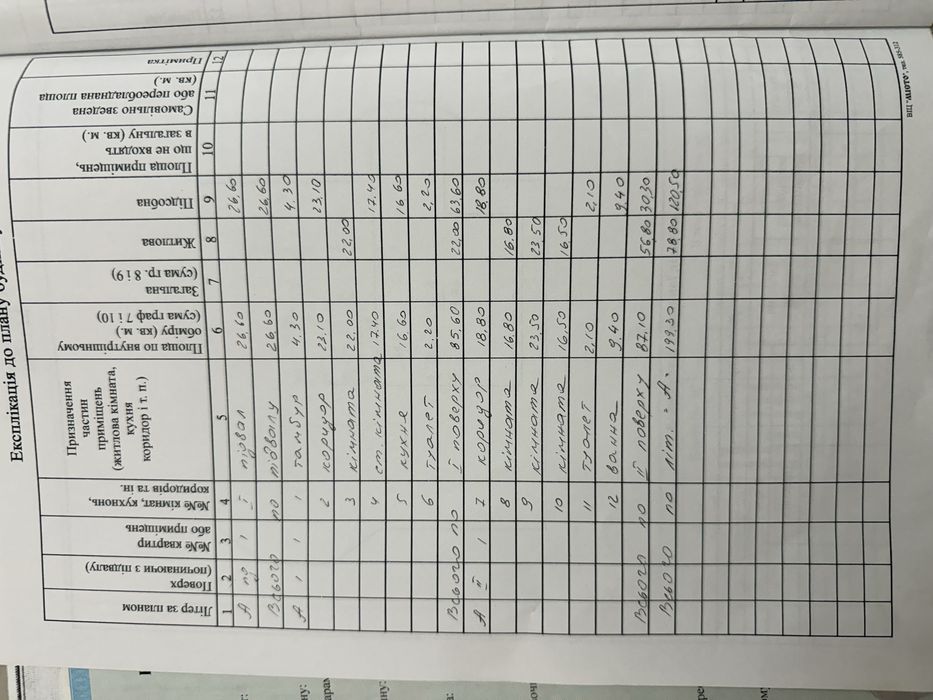 Експлікація до плану
Літер за планом
Поверх (починаючи з підвалу)
№№ квартир або приміщень
№№ кімнат, кухнонь, коридорів та ін.
Призначення частин приміщень (житлова кімната, кухня коридор і т. п.)
Площа по внутрішньому обміру (кв. м.) (сума граф 7 і 10)
Загальна (сума гр. 8 і 9)
Житлова
Підсобна
Площа приміщень, що не входять в загальну (кв. м.)
Самовільно зведена або переобладнана площа (кв. м.)
Примітка
1 2 3 4 5 6 7 8 9 10 11 12
А пд 1 І підвал 26,60 26,60
Всього по підвалу 26.60 26,60
А 1 1 1 тамбур 4.30 4.30
2 коридор 23,10 23,10
3 кімната 22.00 22,00
4 ст. кімната 17.40 17.40
5 кухне 16,60 16 60
6 туалет 2,20 2,20
Всього по І поверху 85,60 22,00 63,60
А ІІ 1 7 коридор 18,80 18,80
8 кімната 16,80 16.80
9 кімната 23,50 23,50
10 кімната 16,50 16,50
11 туалет 2,10 2,10
12 ванна 9.40 9.40
Всього по ІІ поверху 87.10 56,80 30,30
Всього по літ. "А" 199.30 78,80 120,50
ВПЦ "ЛІОТО", зам. 585-312